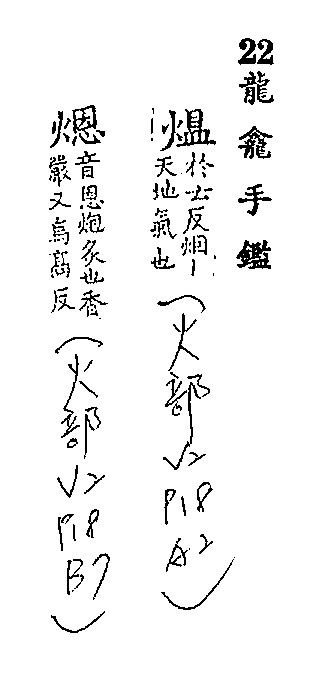 22龍龕手鑑
熅於云反烟丨
天地氣也
(火部V2P18A2)
煾音恩炮炙也香
嚴又烏高反
(火部V2P18B7)